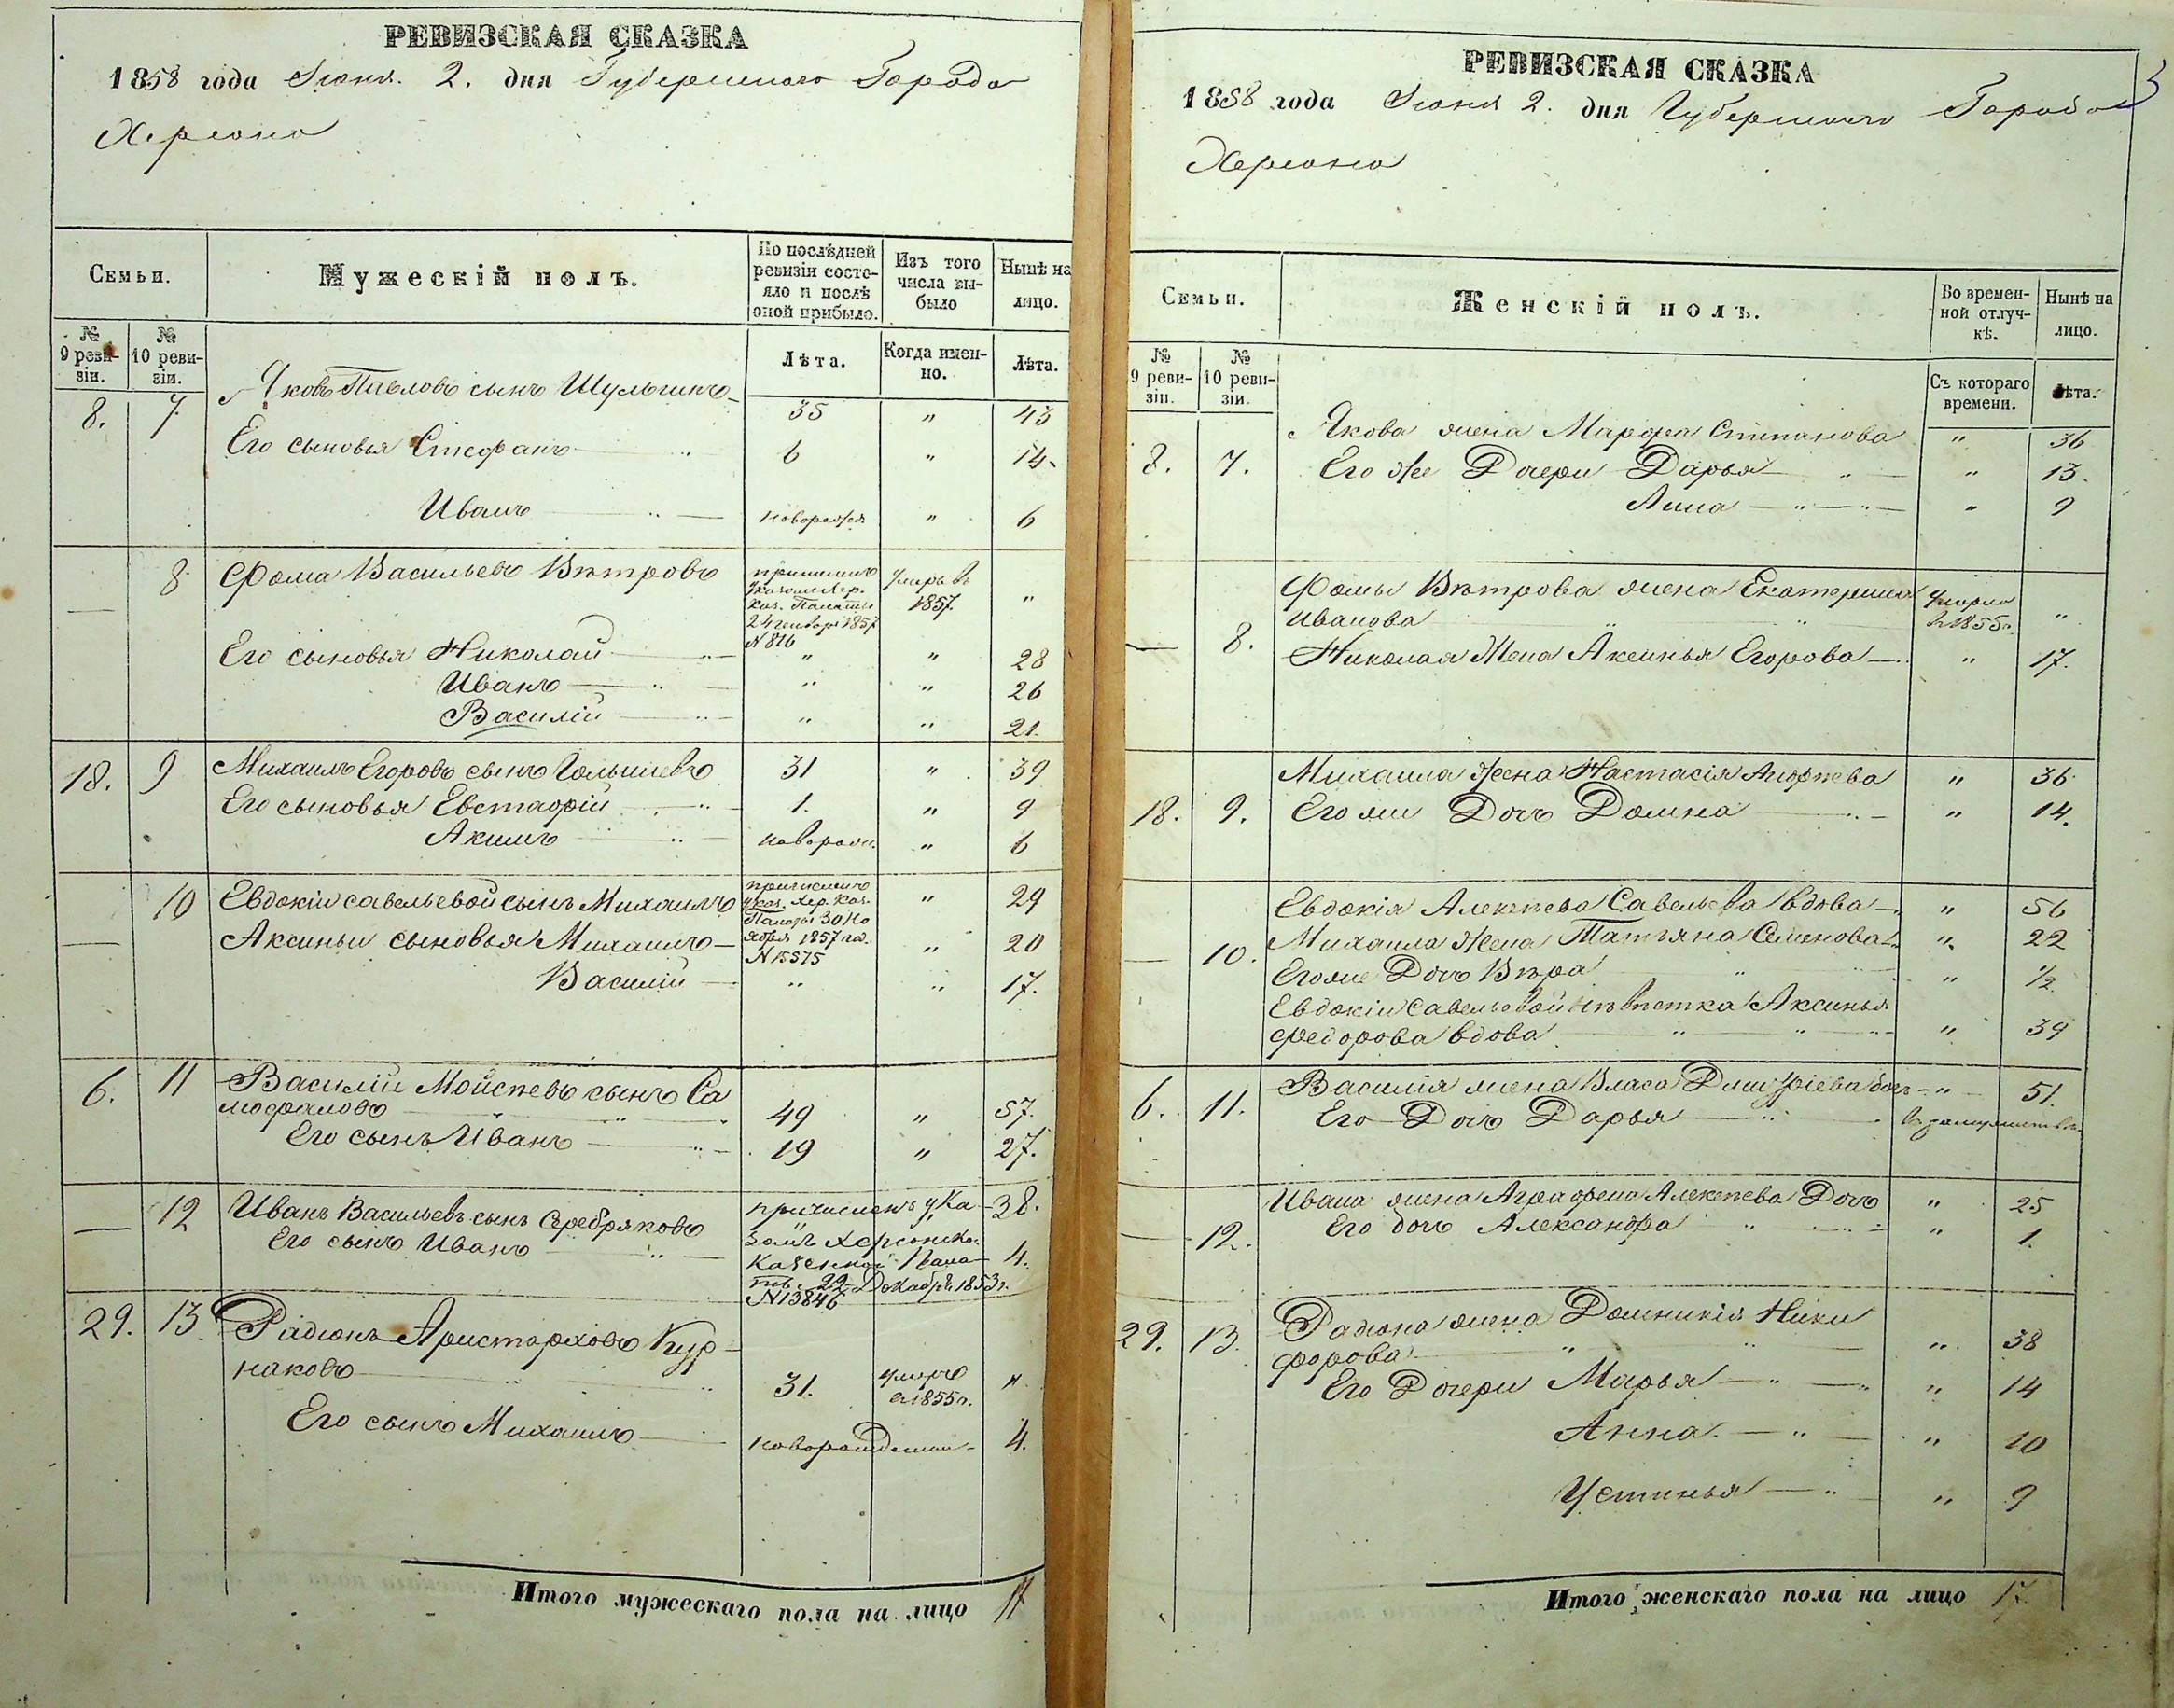 РЕВИЗСКАЯ СКАЗКА
1858 года Июня 2. дня Губернского Города
Херсона
Семьи.
Мужескій полъ.
По послѣдней ревизіи состояло и послѣ оной прибыло.
Изъ того числа выбыло
Нынѣ на лицо.
№ 9 ревизіи.
№ 10 ревизіи.
Лѣта.
Когда именно.
Лѣта.
8. 7 Яковъ Павловъ сынъ Шульгинъ 35 " 43
Его сыновья Стефанъ 6 " 14.
Иванъ новорожд " 6
— 8 Фома Васильевъ Вѣтровъ
причисленъ
Указом Хер.
Каз. Палаты
24 генваря 1857
N 816
Умеръ въ
1857. "
Его сыновья Николай " " 28
Иванъ " " 26
Василій " " 21.
18. 9 Михаилъ Егоровъ сынъ Голышевъ 31 " 39
Его сыновья Евстафій 1. " 9
Акимъ новорож. " 6
— 10 Евдокіи Савельевой сынъ Михаилъ " 29
причисленъ
указ. Хер. Каз.
Палаты 30 Но
ября 1857 год.
N 15575
— Аксиньи сыновья Михаилъ " 20
Василій " " 17.
6. 11 Василій Мойсѣевъ сынъ Са
мофаловъ 49 " 57.
Его сынъ Иванъ 19 " 27.
— 12 Иванъ Васильевъ сынъ Серебряковъ 38.
Его сынъ Иванъ 4.
причисленъ ука
зомъ Херсонской
Казенной Пала
ты 22 Декабря 1853 г.
N 13846
29. 13 Радіонъ Аристарховъ Кур-
наковъ 31. умеръ
в 1855 г. "
Его сынъ Михаилъ новорожденный 4.
Итого мужескаго пола на лицо 17
РЕВИЗСКАЯ СКАЗКА 3
1858 года Июня 2. дня Губернского Города
Херсона
Семьи.
Женскій полъ.
Во временной отлучкѣ.
Нынѣ на лицо.
№ 9 ревизіи.
№ 10 ревизіи.
Съ котораго времени.
Лѣта.
8. 7. Якова жена Марфа Степанова " 36
Его же Дочери Дарья " 13.
Анна " 9
— 8. Фомы Вѣтрова жена Екатерина
Иванова
Умерла
в 1855 г. "
Николая Жена Аксинья Егорова " 17.
18. 9. Михаила Жена Настасія Андреева " 36
Его же Дочь Домна " 14.
— 10. Евдокія Алексѣева Савельева вдова " 56
Михаила Жена Татьяна Семенова " 22
Его же Дочь Вѣра " 1/2
Евдокіи Савельевой невѣстка Аксинья
Федорова вдова " 39
6. 11. Василія жена Власа Дмитріева дочь " 51.
Его Дочь Дарья в замужестве
— 12. Ивана жена Аграфена Алексѣева Дочь " 25
Его дочь Александра " 1.
29. 13. Радіона жена Домникія Ники
форова " 38
Его Дочери Марья " 14
Анна " 10
Устинья " 9
Итого женскаго пола на лицо 17